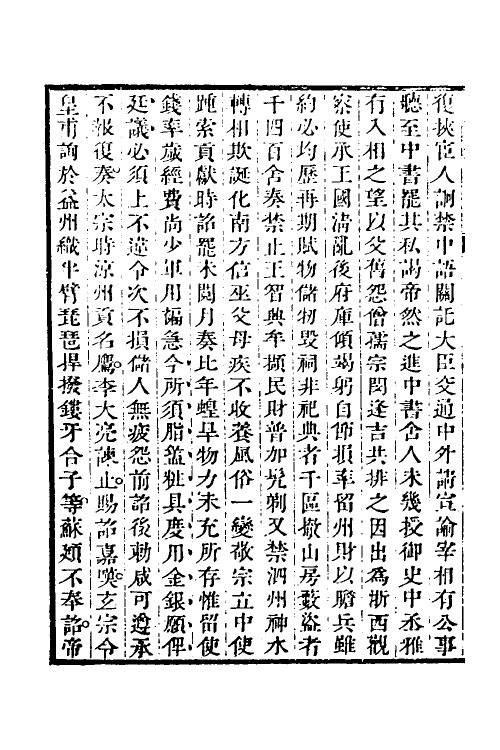 復挾宦人詗禁中語關託大臣交通中外請宣諭宰相有公事
聽至中書罷其私謁帝然之進中書舍人未幾授御史中丞雅
有入相之望以父舊怨僧孺宗閔逢吉共排之因出為浙西觀
察使承王國清亂後府庫傾竭躬自節損率留州財以贍兵雖
約必均歷再期賦物儲牣毀祠非祀典者千區撤山房藪盜者
千四百舍奏禁止王智興牟擷民財普加髡剃又禁泗州神水
轉相欺誕化南方信巫父母疾不收養風俗一變敬宗立中使
踵索貢獻時詔罷未閱月奏比年蝗旱物力未充所存惟留使
錢率歲經費尚少軍用褊急今所須脂盝粧具度用金銀願俾
廷議必須上不違令次不損儲人無疲怨前詔後勅咸可遵承
不報復奏太宗時涼州貢名鷹李大亮諫止賜詔嘉嘆玄宗令
皇甫詢於益州織半臂琵琶捍撥鏤牙合子等蘇頲不奉詔帝